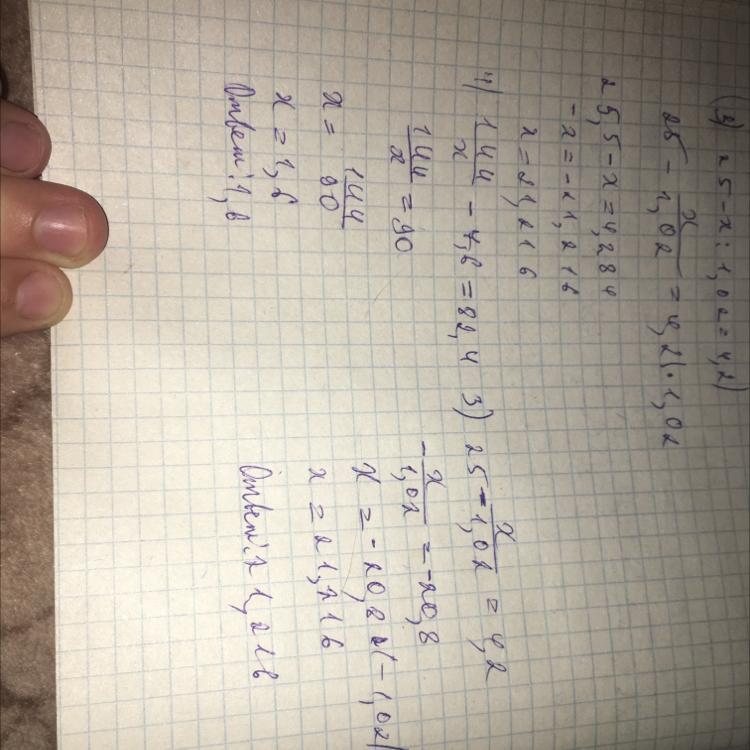 (3) 25 - x : 1,02 = 4,2)
25 - x/1,02 = 4,2 | · 1,02
25,5 - x = 4,284
-x = -21,216
x = 21,216
4) 144/x - 7,6 = 82,4
144/x = 90
x = 144/90
x = 1,6
Ответ: 1,6
3) 25 - x/1,02 = 4,2
-x/1,02 = -20,8
x = -20,8 · (-1,02)
x = 21,216
Ответ: 21,216